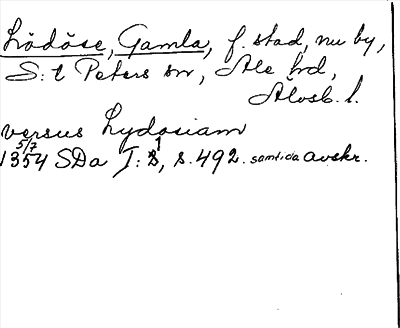 Lödöse, Gamla, f. stad, nu by,
S:t Peters sn, Ale hd,
Älvsb. l.
versus Lydosiam
5/7
1354 SDa I:1, s. 492. samtida avskr.